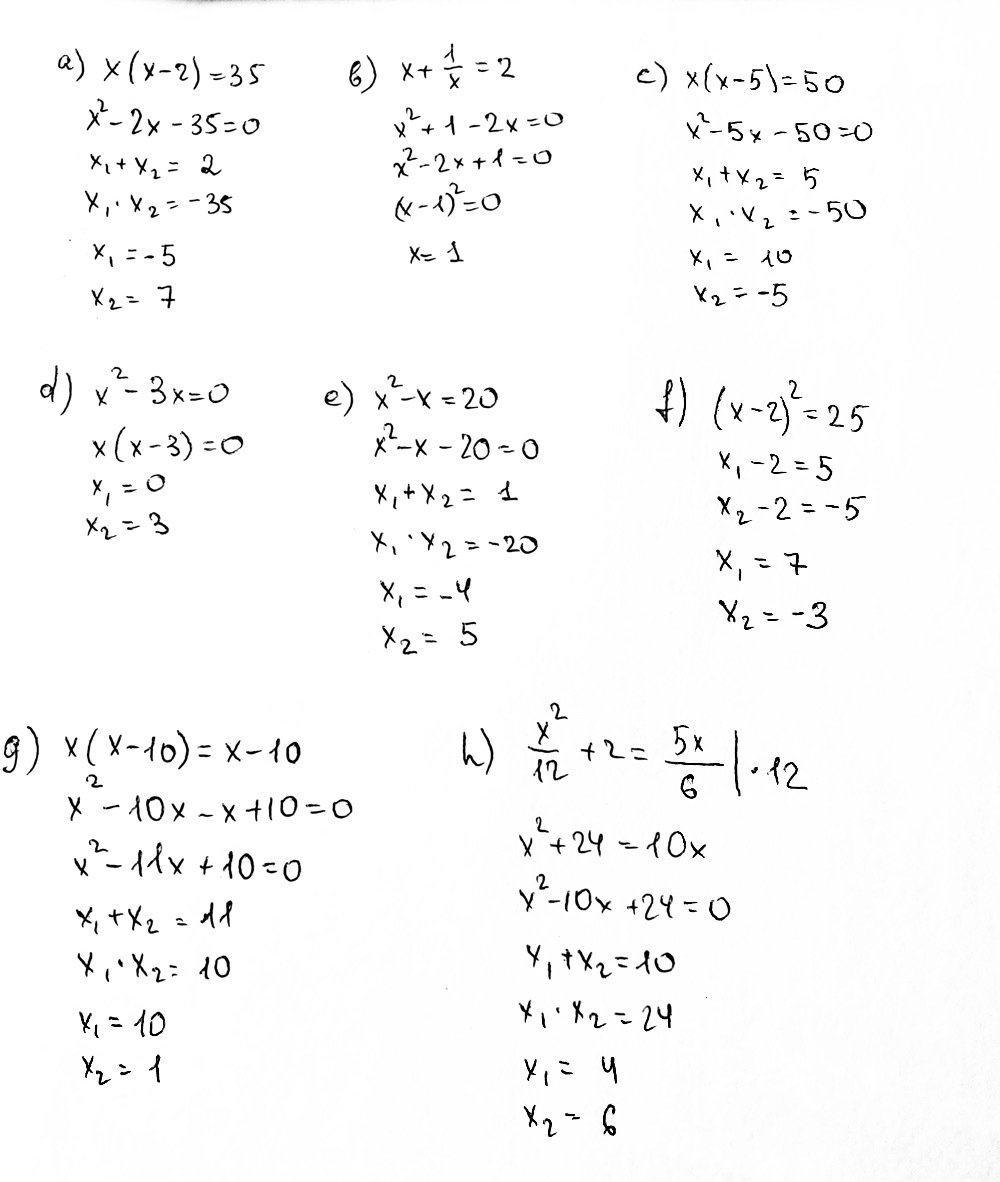 a) x(x-2)=35
x²-2x-35=0
x₁+x₂= 2
x₁·x₂=-35
x₁=-5
x₂= 7
b) x+1/x=2
x²+1-2x=0
x²-2x+1=0
(x-1)²=0
x=1
c) x(x-5)=50
x²-5x-50=0
x₁+x₂= 5
x₁·x₂=-50
x₁= 10
x₂=-5
d) x²-3x=0
x(x-3)=0
x₁=0
x₂=3
e) x²-x=20
x²-x-20=0
x₁+x₂= 1
x₁·x₂=-20
x₁=-4
x₂= 5
f) (x-2)²=25
x₁-2=5
x₂-2=-5
x₁=7
x₂=-3
g) x(x-10)=x-10
x²-10x-x+10=0
x²-11x+10=0
x₁+x₂=11
x₁·x₂=10
x₁=10
x₂=1
h) x²/12+2=5x/6 |·12
x²+24=10x
x²-10x+24=0
x₁+x₂=10
x₁·x₂=24
x₁= 4
x₂= 6